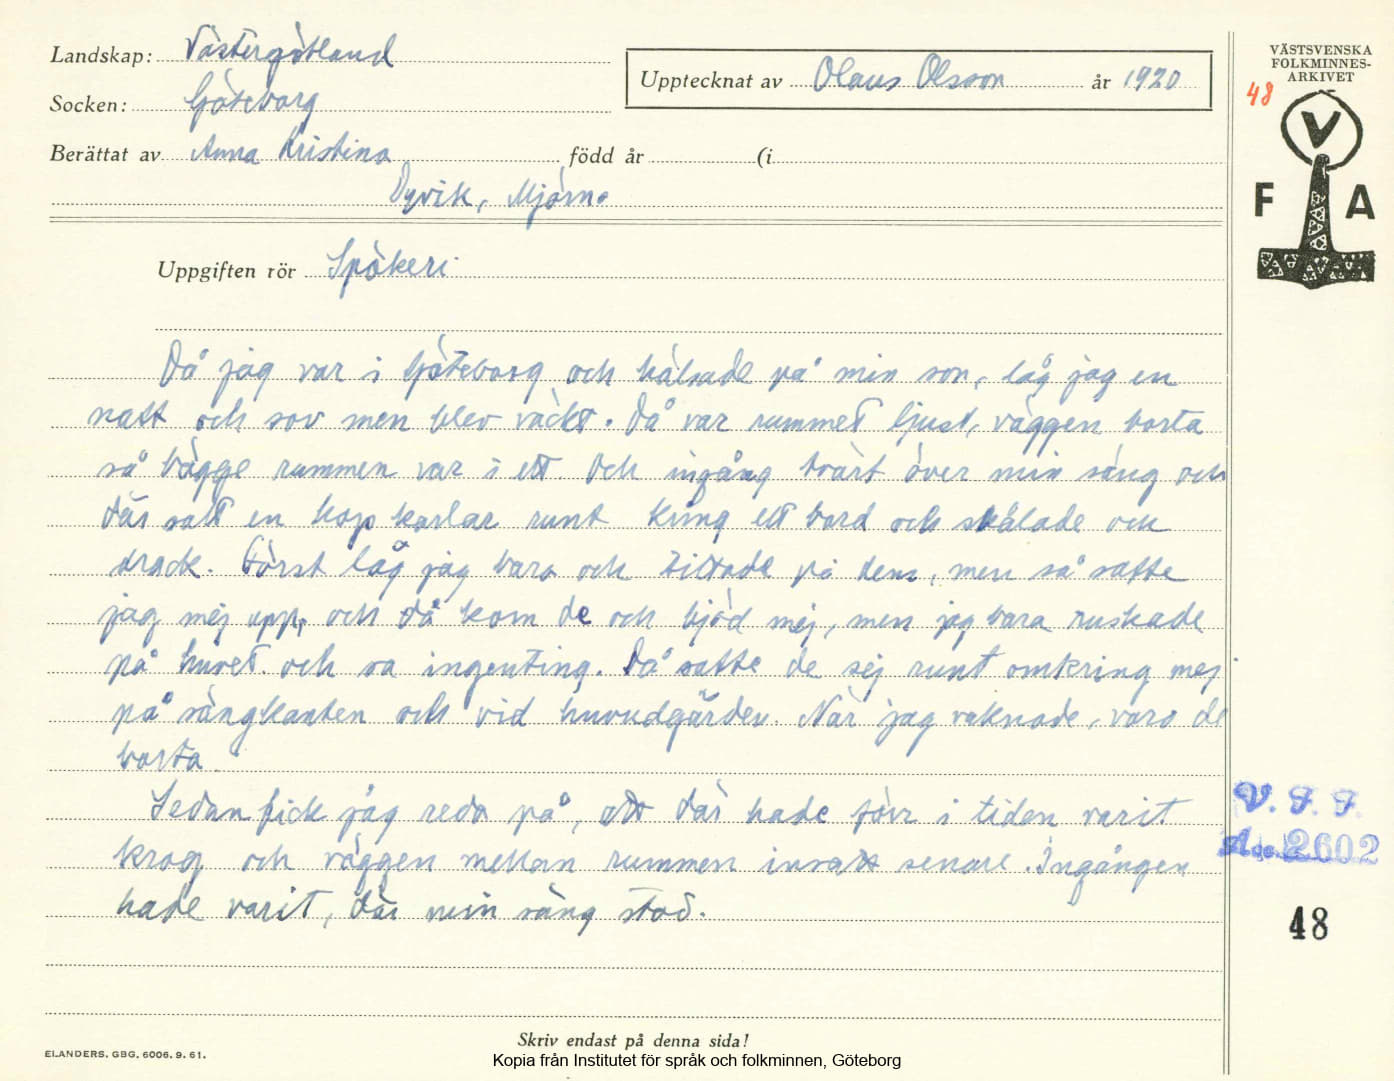 Landskap: Västergötland
Socken: Göteborg
Berättat av Anna Kristina född år (i
Dyvik, Mjörn.
Upptecknat av Olaus Olsson år 1920
VÄSTSVENSKA
FOLKMINNES-
ARKIVET
48
V
F A
Uppgiften rör Spökeri
Då jag var i Göteborg och hälsade på min son, låg jag en
natt och sov men blev väckt. Då var rummet ljust, väggen borta
så bägge rummen var i ett och ingång tvärt över min säng och
där satt en hop karlar runt kring ett bord och skålade och
drack. Först låg jag bara och tittade på dem, men så satte
jag mej upp, och då kom de och bjöd mej, men jag bara ruskade
på huvet och sa ingenting. Då satte de sej runt omkring mej
på sängkanten och vid huvudgärden. När jag vaknade, voro de
borta.
Sedan fick jag reda på, att där hade förr i tiden varit
krog och väggen mellan rummen insatt senare. Ingången
hade varit, där min säng stod.
V. F. F.
Acc. 2602
48
Skriv endast på denna sida!
ELANDERS, GBG, 6006. 9. 61.
Kopia från Institutet för språk och folkminnen, Göteborg